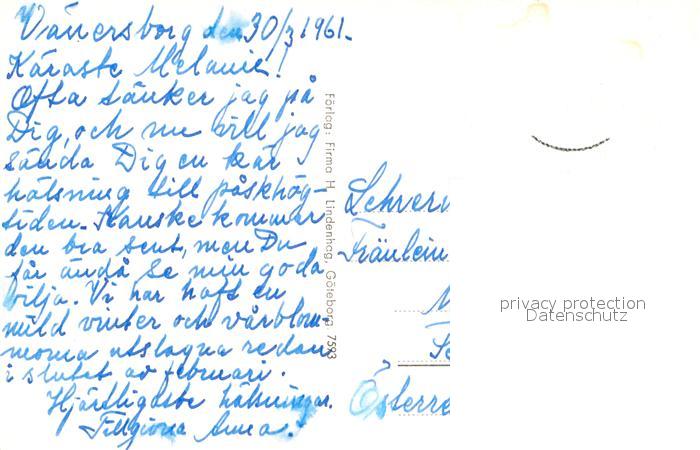 Vänersborg den 30/3 1961.
Käraste Melanie!
Ofta tänker jag på
Dig, och nu vill jag
sända Dig en kär
hälsning till påskhög-
tiden. Kanske kommer
den bra sent, men Du
får ändå se min goda
vilja. Vi har haft en
mild vinter och vårblom-
morna utslagna redan
i slutet av februari.
Hjärtligaste hälsningar.
Tillgivna Anna.
Förlag: Firma H. Lindenhag, Göteborg. 7593
Lehrerin
Fräulein
Österre
privacy protection
Datenschutz